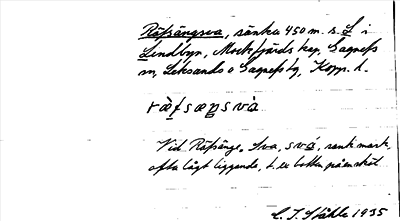 Räfsängsva, sänka 450 m. s. S i
Lindbyn, Mockfjärds kap., Gagnefs
sn, Leksands o Gagnefs tg, Kopp. l.
ræ̀fsæŋsvà
Vid Räfsänge. Sva, svá, sank mark,
ofta lågt liggande, t. ex. botten på en
C. I. Ståhle 1935